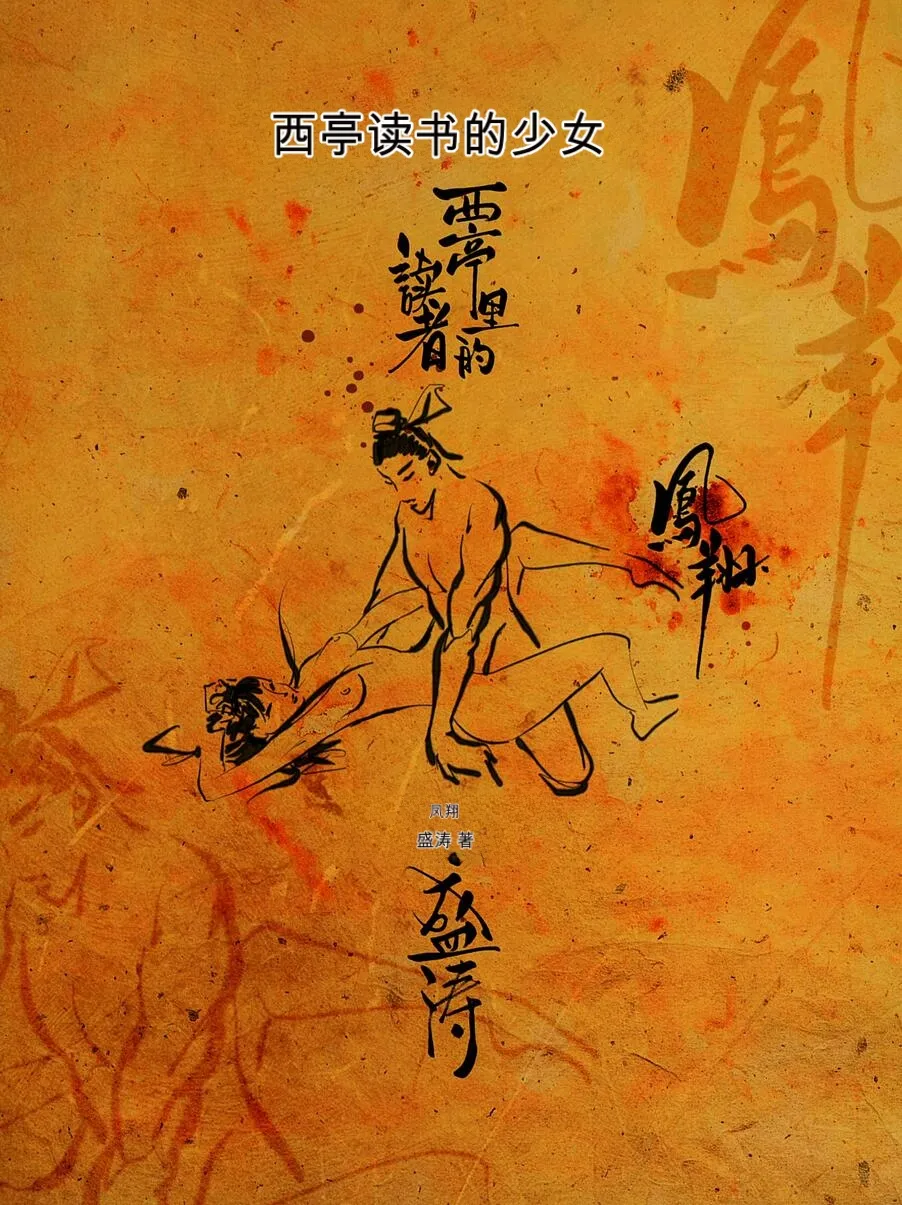 西亭读书的少女
西亭里的
读者
鳳翔
鳳翔
凤翔
盛涛 著
盛涛